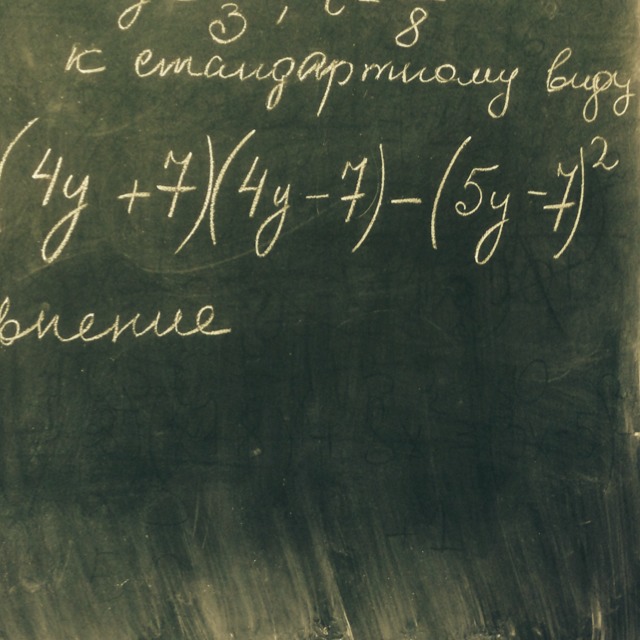 3, 8
к стандартному виду
(4y + 7)(4y - 7) - (5y - 7)²
внение